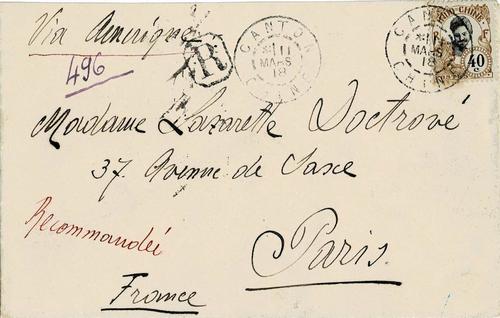 Via Amérique
496
R
CANTON
11
MARS
18
CHINE
CANTON
11
MARS
18
CHINE
INDO-CHINE
RF
40
Madame Lazarette Doctrové
37 Avenue de Saxe
Recommandée
Paris.
France